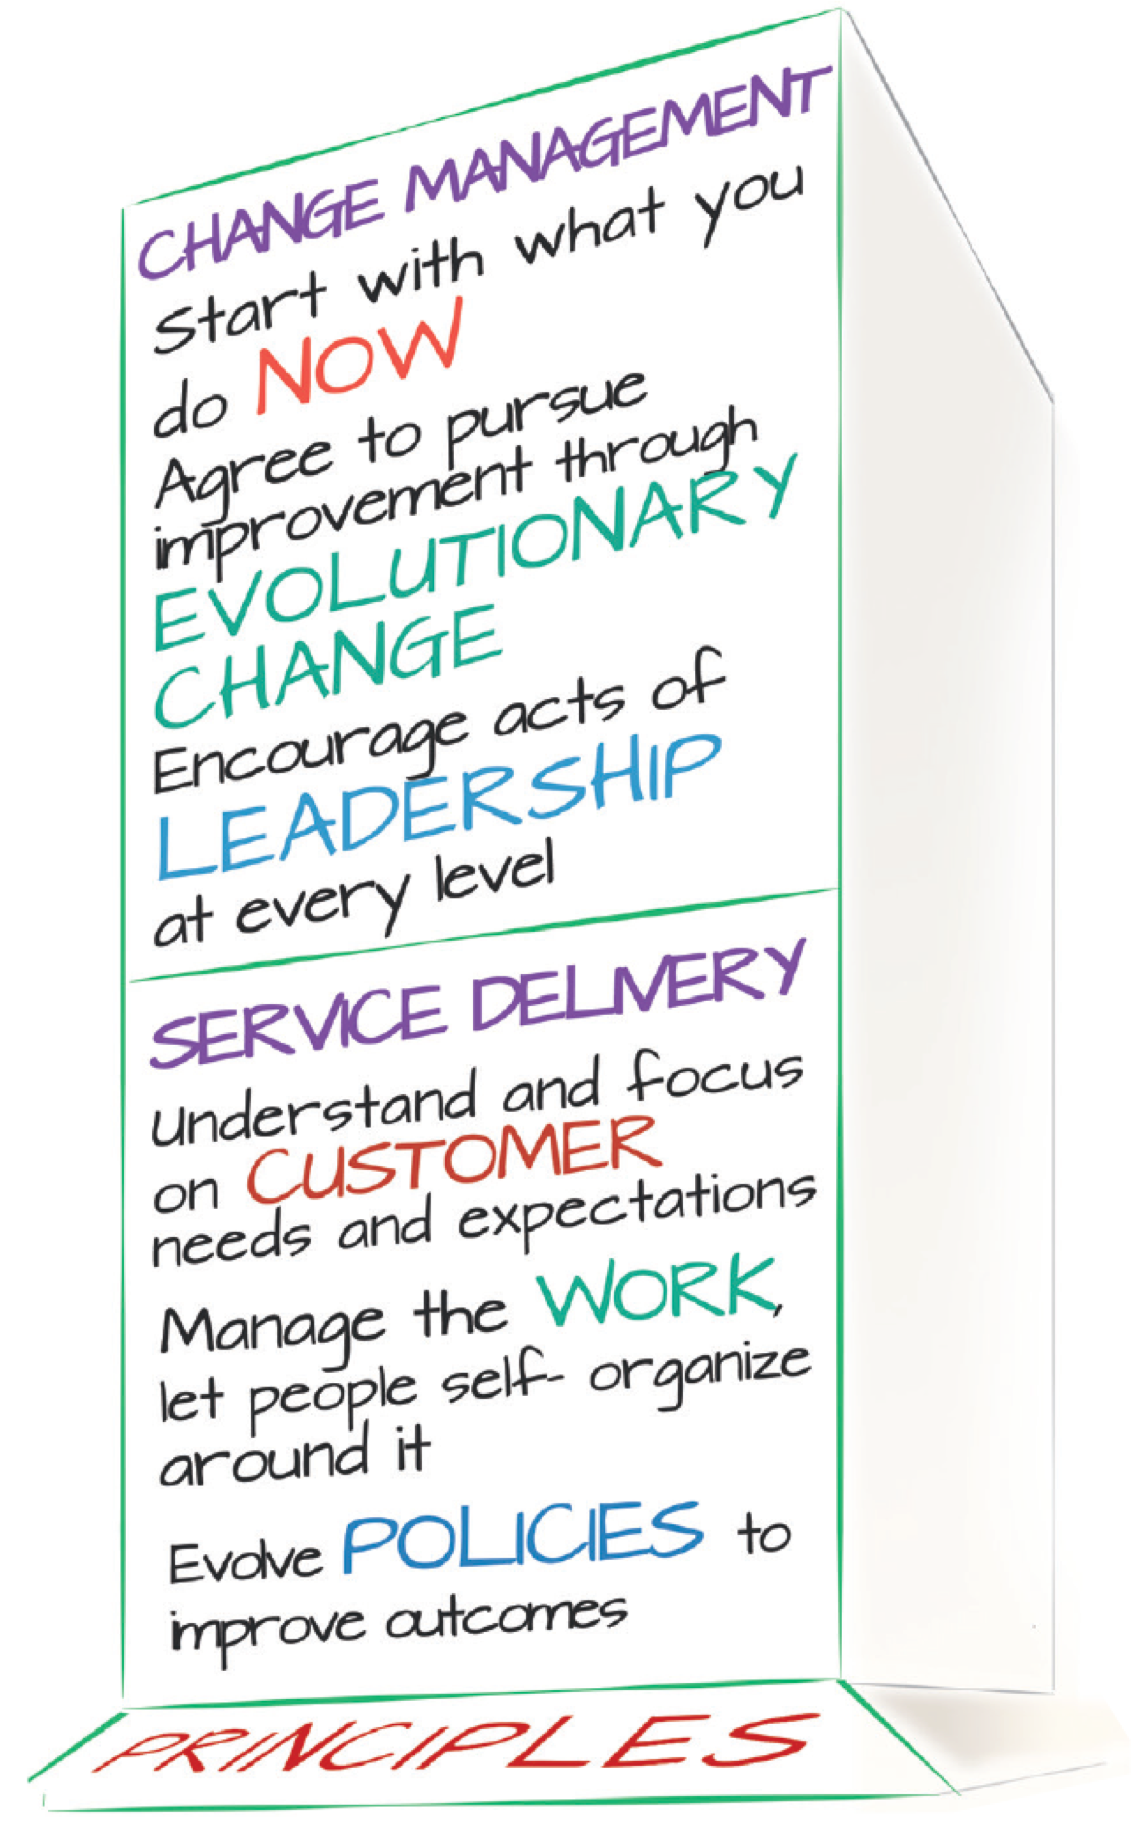 CHANGE MANAGEMENT
Start with what you
do NOW
Agree to pursue
improvement through
EVOLUTIONARY
CHANGE
Encourage acts of
LEADERSHIP
at every level
SERVICE DELIVERY
Understand and focus
on CUSTOMER
needs and expectations
Manage the WORK,
let people self- organize
around it
Evolve POLICIES to
improve outcomes
PRINCIPLES